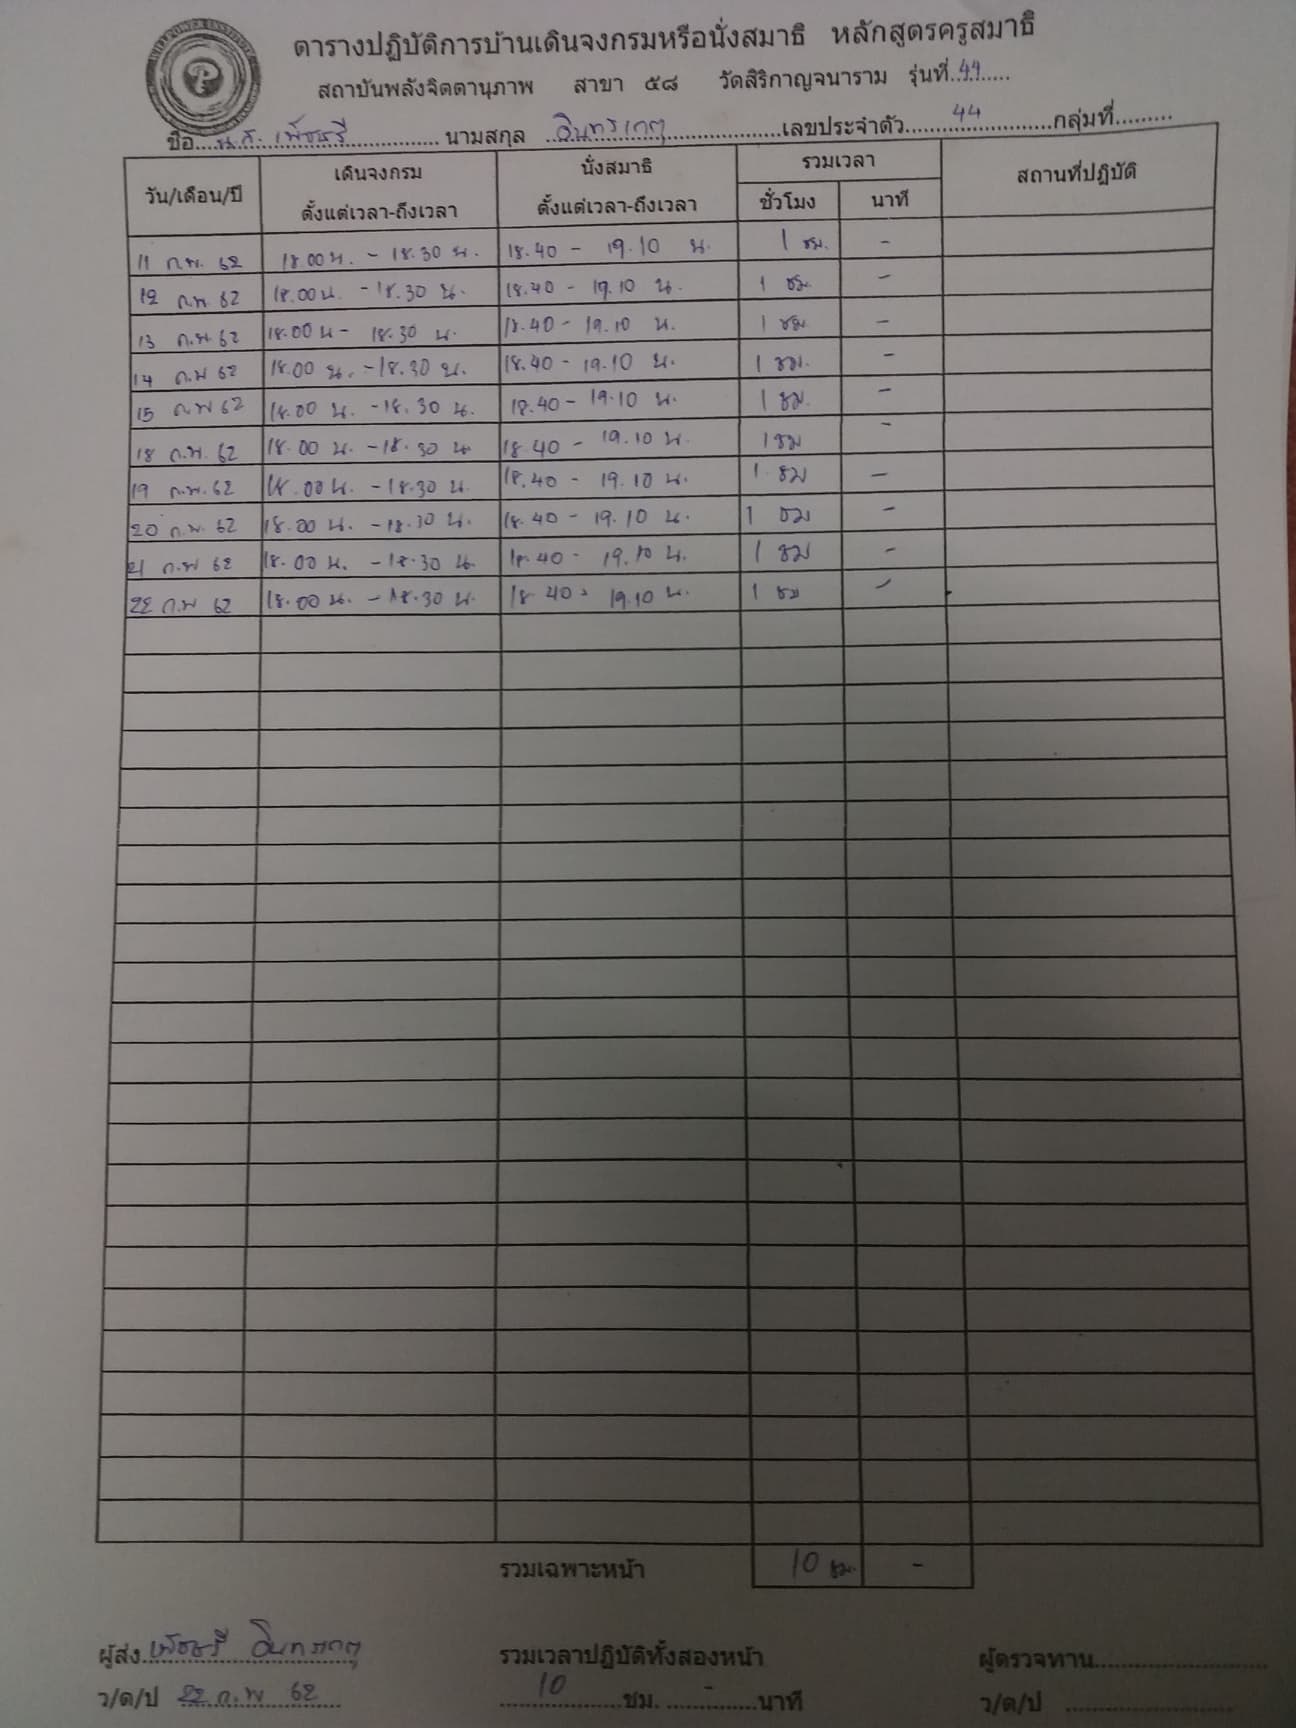 ตารางปฏิบัติการบ้านเดินจงกรมหรือนั่งสมาธิ หลักสูตรครูสมาธิ
สถาบันพลังจิตตานุภาพ สาขา ๕๘ วัดสิริกาญจนาราม รุ่นที่.44......
ชื่อ....น.ส. เพ็ชชรี.............. นามสกุล ...อินทรเกตุ.................เลขประจำตัว.......44...............กลุ่มที่.........
วัน/เดือน/ปี เดินจงกรม นั่งสมาธิ รวมเวลา สถานที่ปฏิบัติ
ตั้งแต่เวลา-ถึงเวลา ตั้งแต่เวลา-ถึงเวลา ชั่วโมง นาที
11 ก.พ. 62 18.00 น. - 18.30 น. 18.40 - 19.10 น. 1 ชม. -
12 ก.พ. 62 18.00 น. - 18.30 น. 18.40 - 19.10 น. 1 ชม. -
13 ก.พ. 62 18.00 น - 18.30 น. 18.40 - 19.10 น. 1 ชม. -
14 ก.พ 62 18.00 น. - 18.30 น. 18.40 - 19.10 น. 1 ชม. -
15 ก.พ 62 18.00 น. - 18.30 น. 18.40 - 19.10 น. 1 ชม. -
18 ก.พ. 62 18.00 น. - 18.30 น 18.40 - 19.10 น. 1 ชม -
19 ก.พ. 62 18.00 น. - 18.30 น. 18.40 - 19.10 น. 1 ชม -
20 ก.พ. 62 18.00 น. - 18.30 น. 18.40 - 19.10 น. 1 ชม -
21 ก.พ 62 18.00 น. - 18.30 น. 18.40 - 19.10 น. 1 ชม -
22 ก.พ 62 18.00 น. - 18.30 น. 18.40 - 19.10 น. 1 ชม -
รวมเฉพาะหน้า 10 ชม. -
ผู้ส่ง.เพ็ชชรี อินทรเกตุ รวมเวลาปฏิบัติทั้งสองหน้า ผู้ตรวจทาน..........................
ว/ด/ป 22 ก.พ 62 ......10............ชม. ......-......นาที ว/ด/ป ..........................